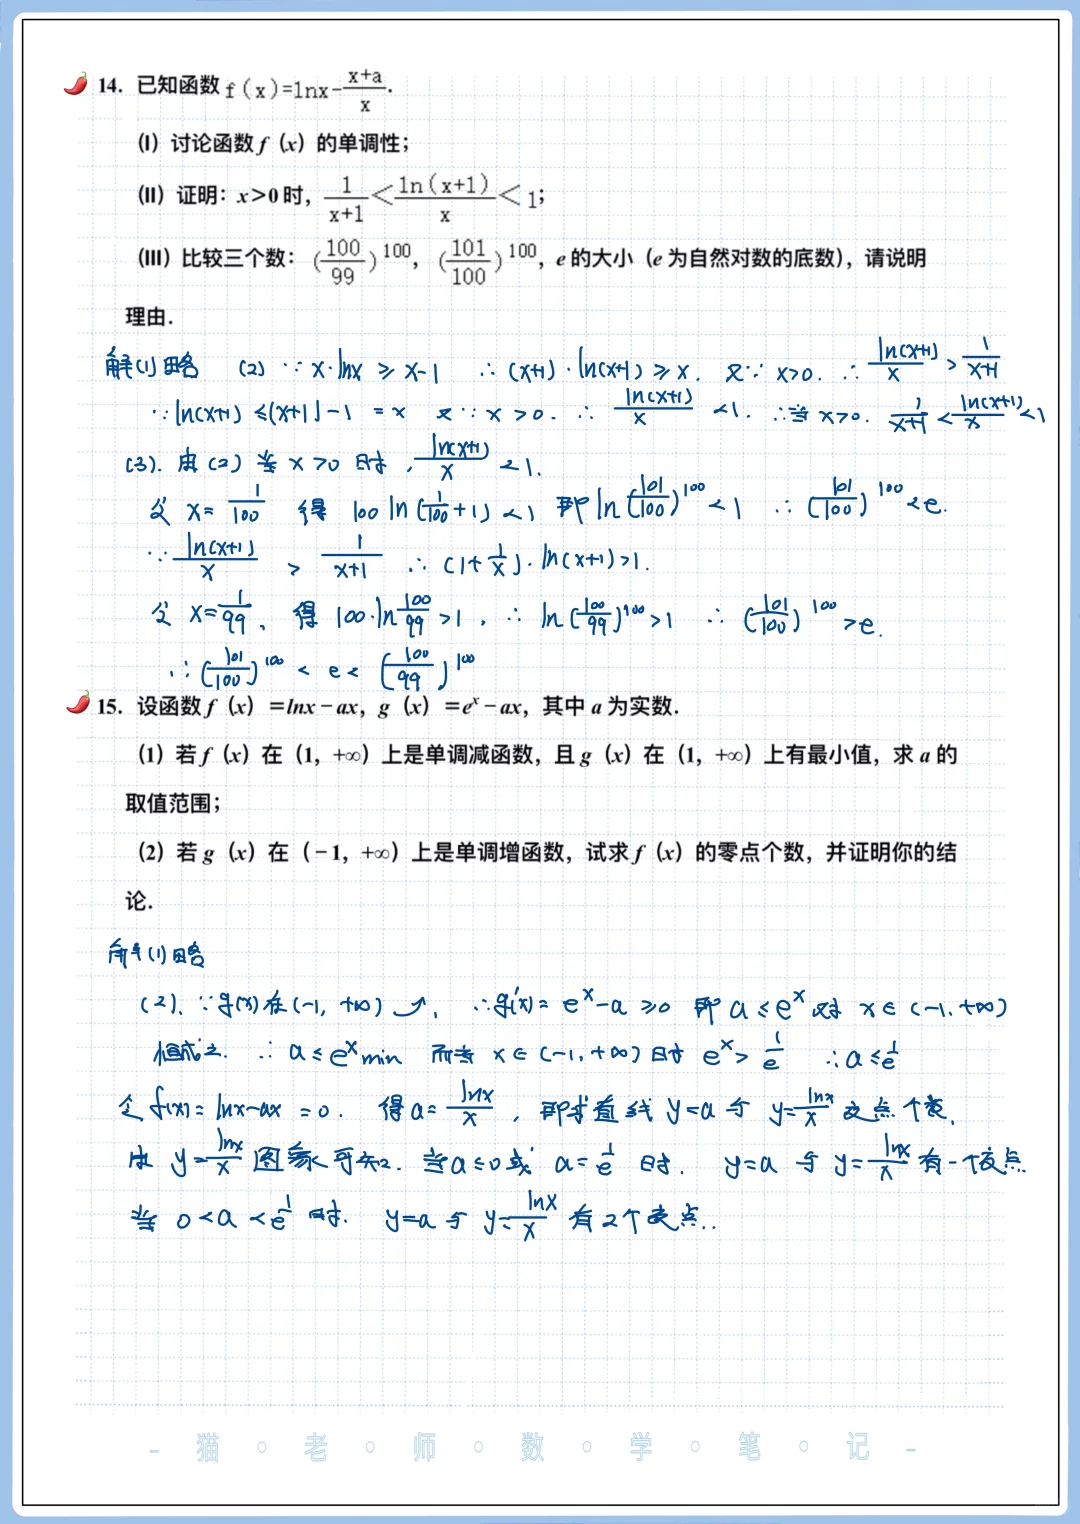 14. 已知函数 f(x)=lnx-(x+a)/x.
(I) 讨论函数 f (x) 的单调性;
(II) 证明: x>0 时, 1/(x+1)<ln(x+1)/x<1;
(III) 比较三个数: (100/99)^100, (101/100)^100, e 的大小 (e 为自然对数的底数), 请说明
理由.
解(1)略 (2) ∵ x·lnx ≥ x-1 ∴ (x+1)·ln(x+1) ≥ x. 又∵ x>0. ∴ ln(x+1)/x > 1/(x+1)
∵ ln(x+1) ≤ (x+1)-1 = x 又∵ x>0. ∴ ln(x+1)/x <1. ∴当 x>0. 1/(x+1) < ln(x+1)/x <1
(3). 由(2) 当 x>0 时, ln(x+1)/x <1.
令 x=1/100 得 100 ln(1/100+1) <1 即 ln(101/100)^100 <1 ∴ (101/100)^100 <e.
∵ ln(x+1)/x > 1/(x+1) ∴ (1+1/x)·ln(x+1)>1.
令 x=1/99, 得 100·ln 100/99 >1, ∴ ln(100/99)^100 >1 ∴ (101/100)^100 >e.
∴ (101/100)^100 < e < (100/99)^100
15. 设函数 f (x) =lnx-ax, g (x) =e^x-ax, 其中 a 为实数.
(1) 若 f (x) 在 (1, +∞) 上是单调减函数, 且 g (x) 在 (1, +∞) 上有最小值, 求 a 的
取值范围;
(2) 若 g (x) 在 (-1, +∞) 上是单调增函数, 试求 f (x) 的零点个数, 并证明你的结
论.
解(1)略
(2). ∵ g(x)在(-1, +∞) ↗, ∴g'(x)= e^x-a ≥0 即 a ≤ e^x 对 x∈(-1,+∞)
恒成立. ∴ a ≤ e^x min 而当 x∈(-1,+∞)时 e^x > 1/e ∴a ≤ 1/e
令 f(x)= lnx-ax =0. 得 a= lnx/x, 即求直线 y=a 与 y=lnx/x 交点个数.
由 y=lnx/x 图象可知. 当 a≤0 或 a=1/e 时. y=a 与 y=lnx/x 有一个交点
当 0<a<1/e 时. y=a 与 y=lnx/x 有2个交点..
- 猫 · 老 · 师 · 数 · 学 · 笔 · 记 -